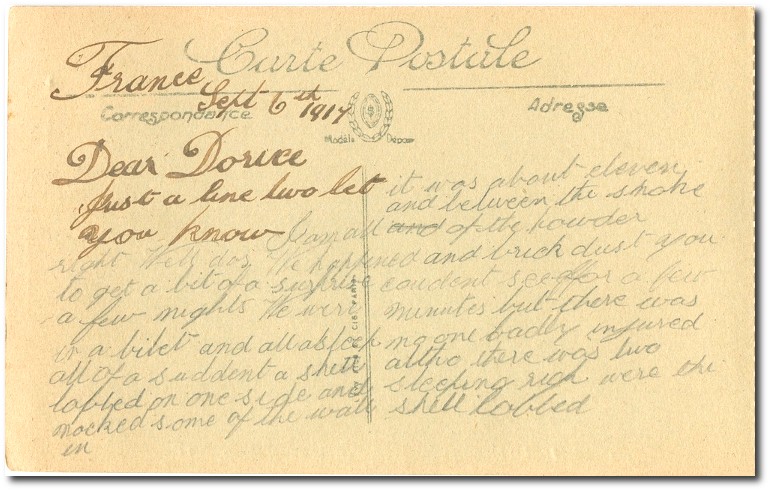 Carte Postale
France
Sept 6th 1917
Correspondance
Modèle Déposé
Adresse
Dear Dorice
Just a line two let
you know I am all
right We happened
to get a bit of a surprise
a few nights We were
in a bilet and all asleep
all of a suddent a shell
lobbed on one side and
nocked some of the wall
in
it was about eleven
and between the smoke
and of the powder
and brick dust you
coudent see for a few
minutes but there was
no one badly injured
altho there was two
sleeping righ were the
shell lobbed